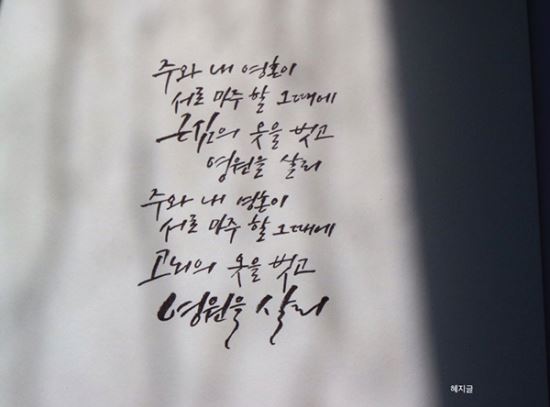 주와 내 영혼이
서로 마주 할 그때에
근심의 옷을 벗고
영원을 살리
주와 내 영혼이
서로 마주 할 그때에
고뇌의 옷을 벗고
영원을 살리
혜지글